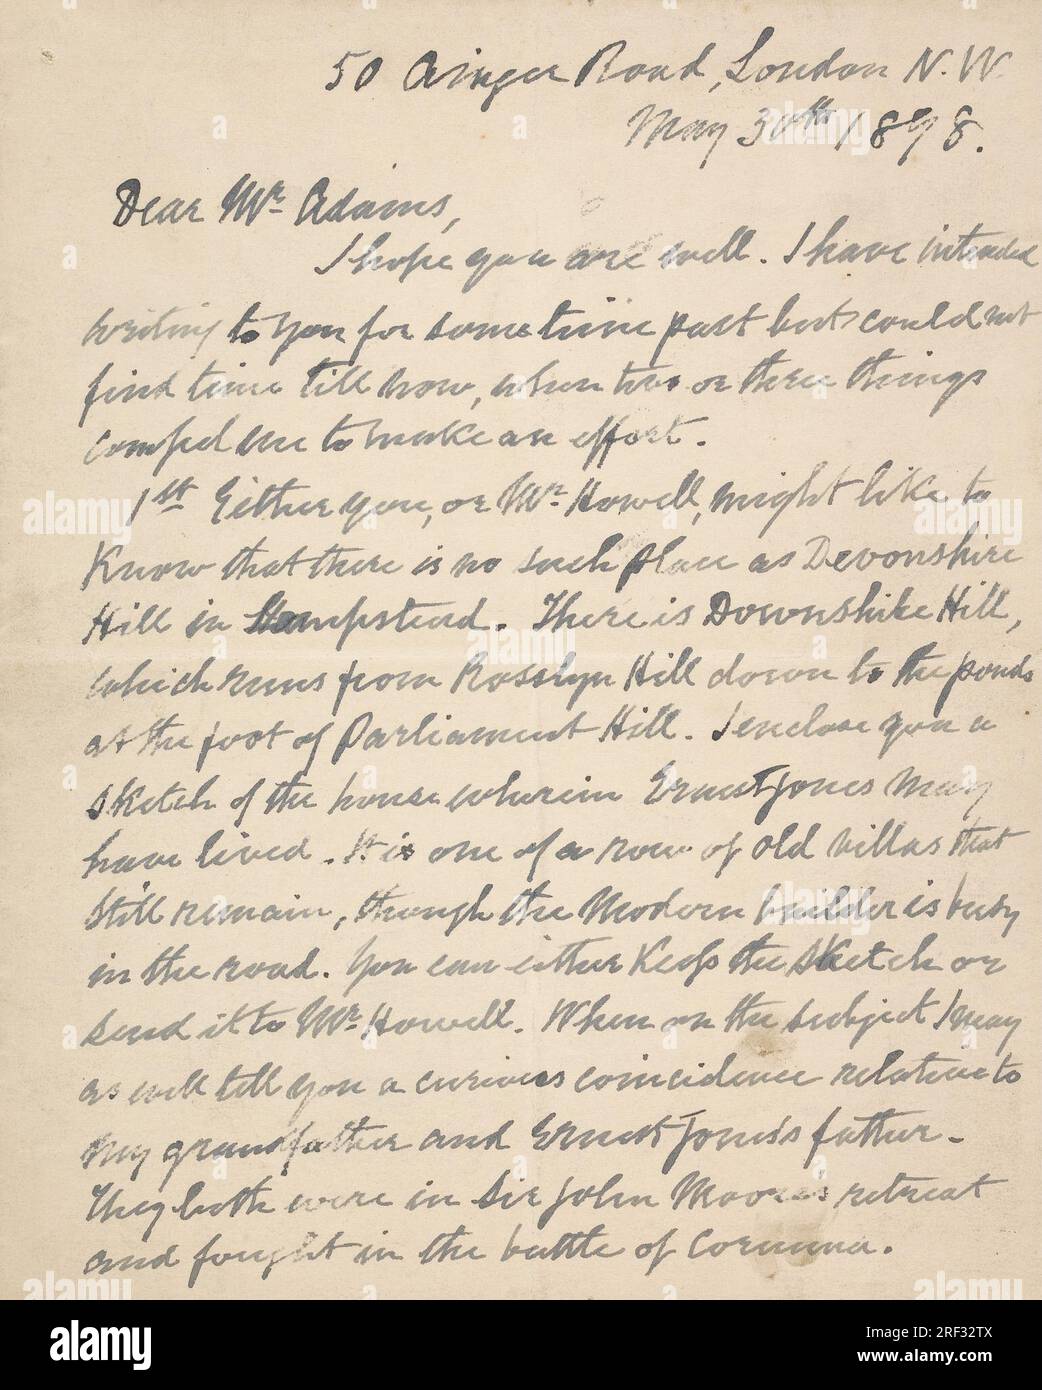 50 Ainger Road, London N.W.
May 30th 1898.
Dear Mr Adams,
I hope you are well. I have intended
writing to you for some time past but could not
find time till now, when two or three things
compel me to make an effort.
1st Either you, or Mr Howell, might like to
Know that there is no such place as Devonshire
Hill in Hampstead. There is Downshire Hill,
which runs from Rosslyn Hill down to the ponds
at the foot of Parliament Hill. I enclose you a
sketch of the house wherein Ernest Jones may
have lived. It is one of a row of old villas that
still remain, though the modern builder is busy
in the road. You can either Keep the sketch or
send it to Mr Howell. When on the subject I may
as well tell you a curious coincidence relative to
my grandfather and Ernest Jones's father.
They both were in Sir John Moore's retreat
and fought in the battle of Corunna.
alamy
a
alamy
Image ID: 2RF32TX
www.alamy.com